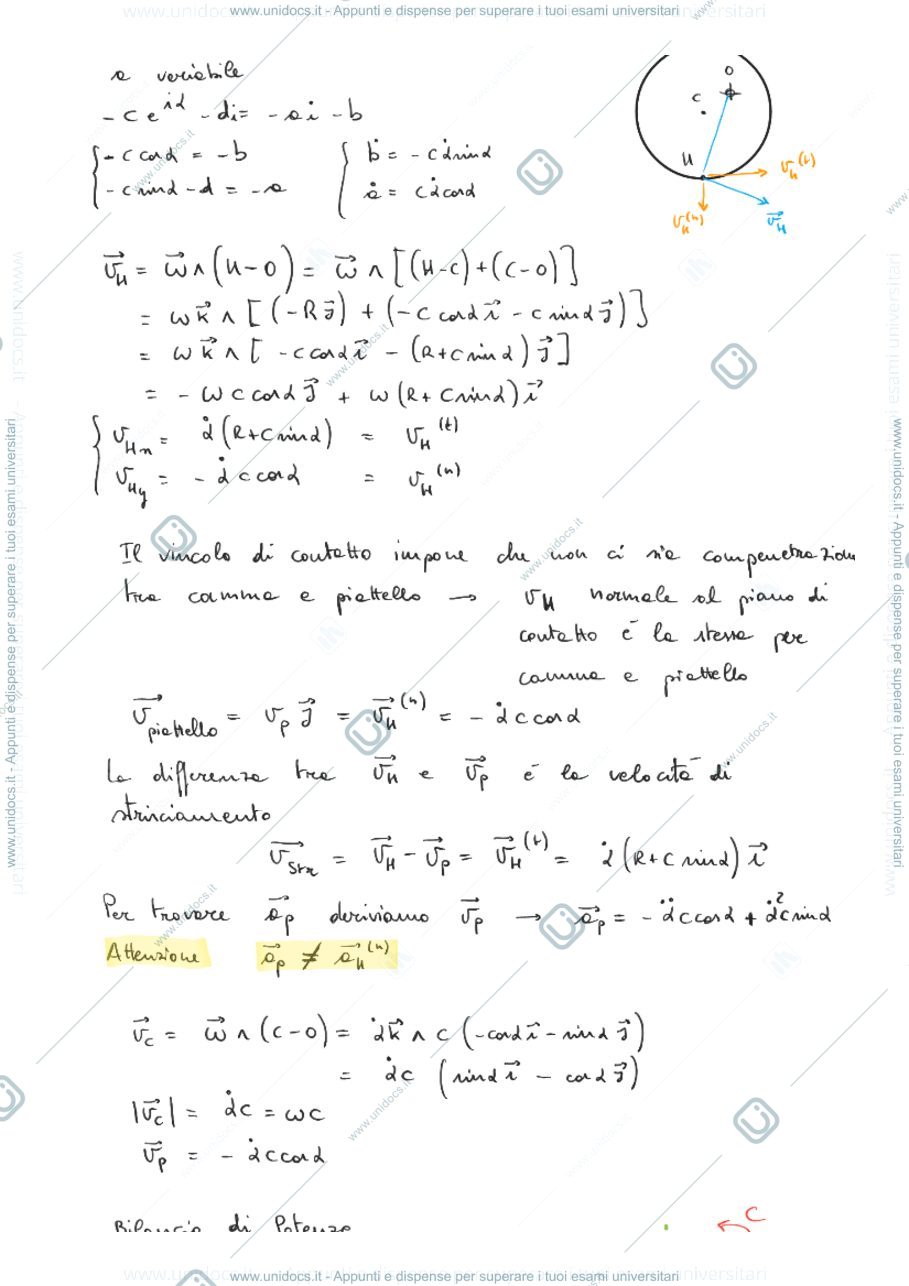 www.unidocs.it - Appunti e dispense per superare i tuoi esami universitari
a variabile
- c e^{iα} - di = - ai - b
{ - c cosα = - b
- c sinα - d = - a
{ ḃ = - c α̇ sinα
ȧ = c α̇ cosα
O
C
H
v_H^(t)
v_H^(n)
v⃗_H
v⃗_H = ω⃗ ∧ (H-O) = ω⃗ ∧ [(H-C)+(C-O)]
= ω k⃗ ∧ [(-R j⃗) + (-c cosα i⃗ - c sinα j⃗)]
= ω k⃗ ∧ [-c cosα i⃗ - (R+c sinα) j⃗]
= - ω c cosα j⃗ + ω (R+c sinα) i⃗
{ v_Hx = α̇ (R+c sinα) = v_H^(t)
v_Hy = - α̇ c cosα = v_H^(n)
Il vincolo di contatto impone che non ci sia compenetrazion
tra camma e piattello → v_H normale al piano di
contatto è la stessa per
camma e piattello
v⃗_piattello = v_p j⃗ = v⃗_H^(n) = - α̇ c cosα
La differenza tra v⃗_H e v⃗_p è la velocità di
strisciamento
v⃗_str = v⃗_H - v⃗_p = v⃗_H^(t) = α̇ (R+c sinα) i⃗
Per trovare a⃗_p deriviamo v⃗_p → a⃗_p = - α̈ c cosα + α̇² c sinα
Attenzione a⃗_p ≠ a⃗_H^(n)
v⃗_c = ω⃗ ∧ (C-O) = α̇ k⃗ ∧ c (-cosα i⃗ - sinα j⃗)
= α̇ c (sinα i⃗ - cosα j⃗)
|v⃗_c| = α̇ c = ω c
v⃗_p = - α̇ c cosα
Bilancio di Potenze
C
www.unidocs.it - Appunti e dispense per superare i tuoi esami universitari
www.unidocs.it - Appunti e dispense per superare i tuoi esami universitari
www.unidocs.it - Appunti e dispense per superare i tuoi esami universitari